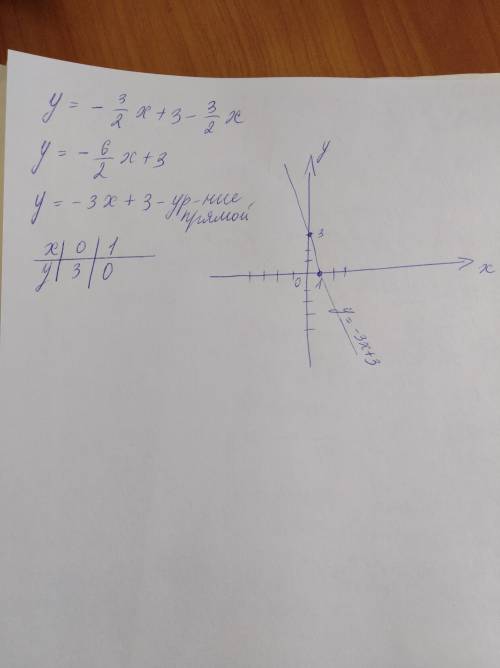 y = - 3/2 x + 3 - 3/2 x
y = - 6/2 x + 3
y = -3x + 3 - ур-ние
прямой
x | 0 | 1
y | 3 | 0
y
3
0 1 x
y = -3x+3